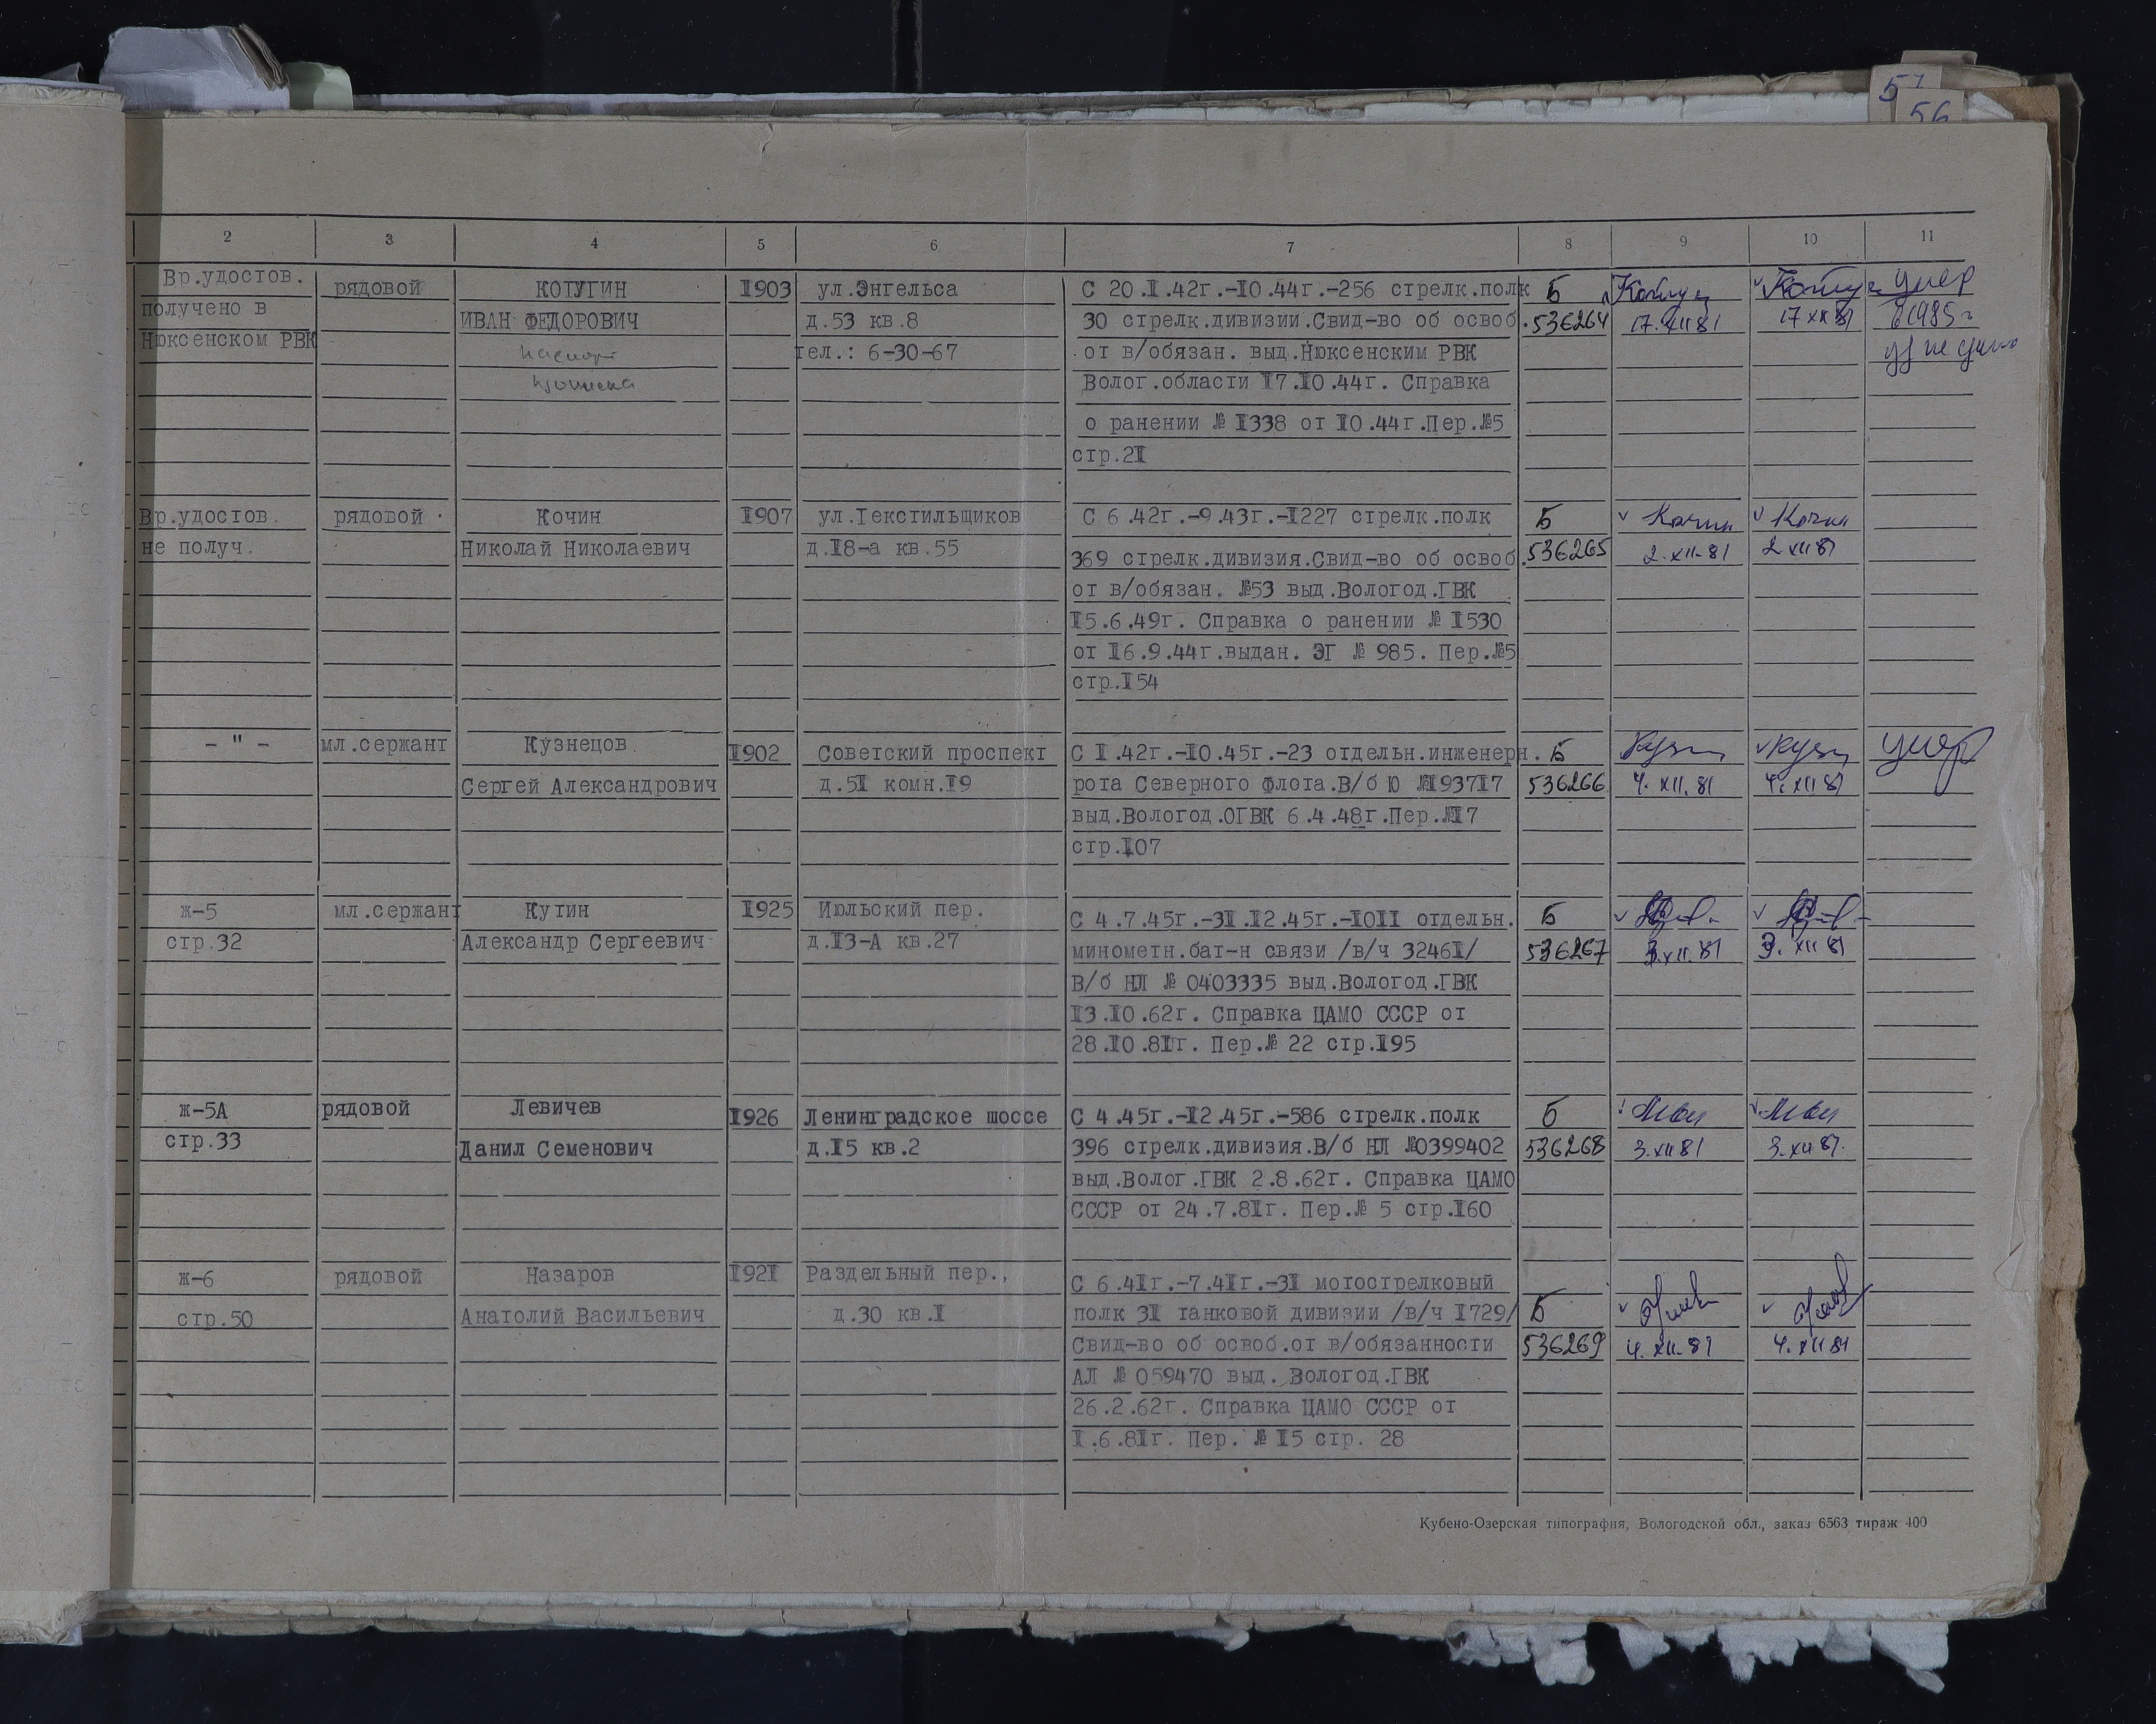 57
56
2 3 4 5 6 7 8 9 10 11
Вр.удостов. рядовой КОТУГИН I903 ул.Энгельса С 20.I.42г.-I0.44г.-256 стрелк.полк Б умер
получено в ИВАН ФЕДОРОВИЧ д.53 кв.8 30 стрелк.дивизии.Свид-во об освоб. 536264 17.XII 81 17 XII 81 в 1985 г
Нюксенском РВК паспорт тел.: 6-30-67 от в/обязан. выд.Нюксенским РВК
Волог.области I7.I0.44г. Справка
о ранении № I338 от I0.44г.Пер.№5
стр.2I
Вр.удостов. рядовой Кочин I907 ул.Текстильщиков С 6.42г.-9.43г.-I227 стрелк.полк Б Кочин Кочин
не получ. Николай Николаевич д.I8-а кв.55 369 стрелк.дивизия.Свид-во об освоб. 536265 2.XII-81 2 XII 81
от в/обязан. №53 выд.Вологод.ГВК
I5.6.49г. Справка о ранении № I530
от I6.9.44г.выдан. ЭГ № 985. Пер.№5
стр.I54
- " - мл.сержант Кузнецов I902 Советский проспект С I.42г.-I0.45г.-23 отдельн.инженерн. Б умер
Сергей Александрович д.5I комн.I9 рота Северного Флота.В/б Ю №I937I7 536266 4.XII.81 4.XII 81
выд.Вологод.ОГВК 6.4.48г.Пер.№I7
стр.I07
ж-5 мл.сержант Кутин I925 Июльский пер. С 4.7.45г.-3I.I2.45г.-I0II отдельн. Б
стр.32 Александр Сергеевич д.I3-А кв.27 минометн.бат-н связи /в/ч 3246I/ 536267 3.XII.81 3.XII 81
В/б НЛ № 0403335 выд.Вологод.ГВК
I3.I0.62г. Справка ЦАМО СССР от
28.I0.8Iг. Пер.№ 22 стр.I95
ж-5А рядовой Левичев I926 Ленинградское шоссе С 4.45г.-I2.45г.-586 стрелк.полк Б
стр.33 Данил Семенович д.I5 кв.2 396 стрелк.дивизия.В/б НЛ №0399402 536268 3.XII 81 3.XII 81.
выд.Волог.ГВК 2.8.62г. Справка ЦАМО
СССР от 24.7.8Iг. Пер.№ 5 стр.I60
ж-6 рядовой Назаров I92I Раздельный пер., С 6.4Iг.-7.4Iг.-3I мотострелковый
стр.50 Анатолий Васильевич д.30 кв.I полк 3I танковой дивизии /в/ч I729/ Б
Свид-во об освоб.от в/обязанности 536269 4.XII.81 4.XII 81
АЛ № 059470 выд. Вологод.ГВК
26.2.62г. Справка ЦАМО СССР от
I.6.8Iг. Пер. № I5 стр. 28
Кубено-Озерская типография, Вологодской обл., заказ 6563 тираж 400